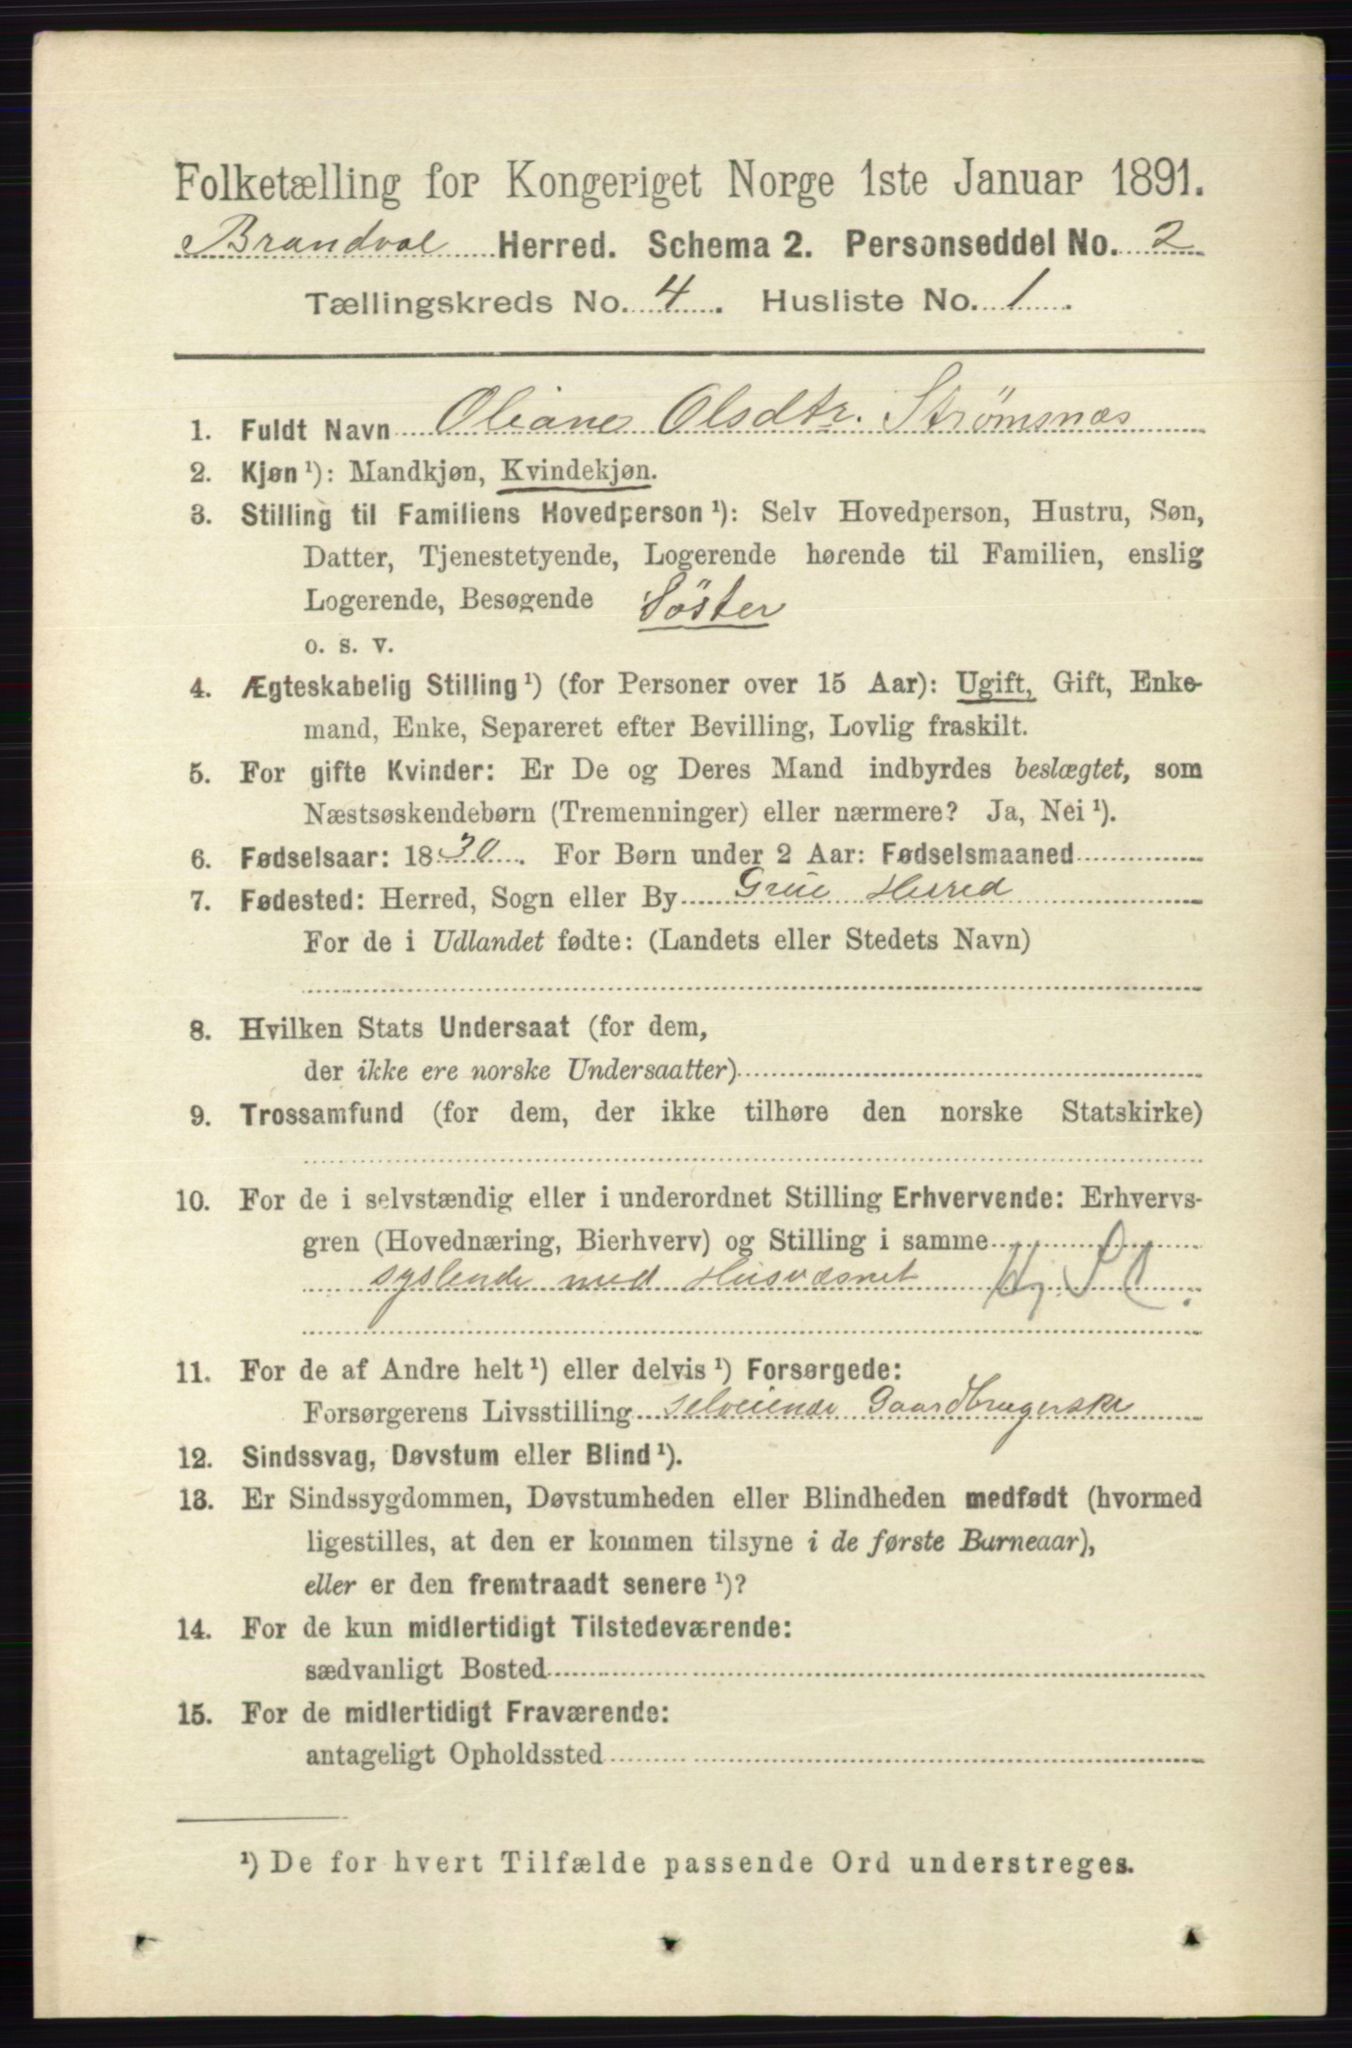 Folketælling for Kongeriget Norge 1ste Januar 1891.
Brandval Herred. Schema 2. Personseddel No. 2
Tællingskreds No. 4. Husliste No. 1.
1. Fuldt Navn Oliane Olsdtr. Strømsnæs
2. Kjøn ¹): Mandkjøn, Kvindekjøn.
3. Stilling til Familiens Hovedperson ¹): Selv Hovedperson, Hustru, Søn,
Datter, Tjenestetyende, Logerende hørende til Familien, enslig
Logerende, Besøgende Söster
o. s. v.
4. Ægteskabelig Stilling ¹) (for Personer over 15 Aar): Ugift, Gift, Enke-
mand, Enke, Separeret efter Bevilling, Lovlig fraskilt.
5. For gifte Kvinder: Er De og Deres Mand indbyrdes beslægtet, som
Næstsøskendebørn (Tremenninger) eller nærmere? Ja, Nei ¹).
6. Fødselsaar: 1830. For Børn under 2 Aar: Fødselsmaaned
7. Fødested: Herred, Sogn eller By Grue Herred
For de i Udlandet fødte: (Landets eller Stedets Navn)
8. Hvilken Stats Undersaat (for dem,
der ikke ere norske Undersaatter)
9. Trossamfund (for dem, der ikke tilhøre den norske Statskirke)
10. For de i selvstændig eller i underordnet Stilling Erhvervende: Erhvervs-
gren (Hovednæring, Bierhverv) og Stilling i samme
syslende med Husvæsnet
11. For de af Andre helt ¹) eller delvis ¹) Forsørgede:
Forsørgerens Livsstilling selveiende Gaardbrugerske
12. Sindssvag, Døvstum eller Blind ¹).
13. Er Sindssygdommen, Døvstumheden eller Blindheden medfødt (hvormed
ligestilles, at den er kommen tilsyne i de første Barneaar),
eller er den fremtraadt senere ¹)?
14. For de kun midlertidigt Tilstedeværende:
sædvanligt Bosted
15. For de midlertidigt Fraværende:
antageligt Opholdssted
¹) De for hvert Tilfælde passende Ord understreges.